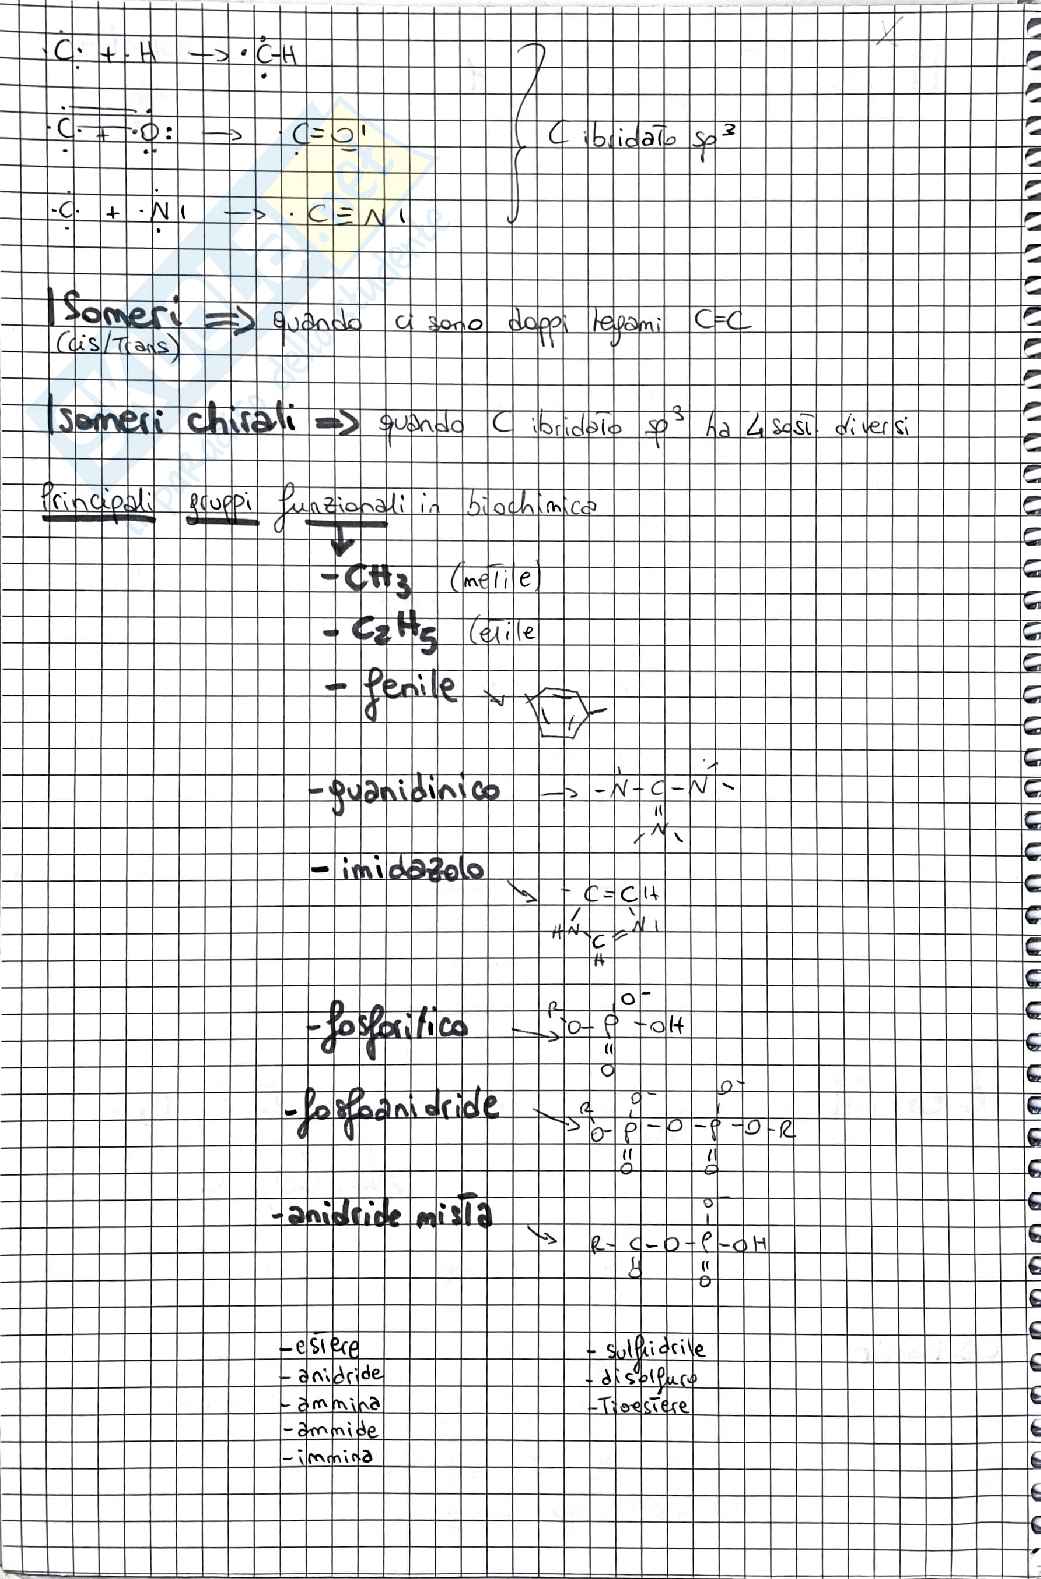 ·Ċ· + ·H → ·Ċ-H
·C· + ·O: → ·C=O|
·C· + ·N| → ·C≡N|
C ibridato sp³
Isomeri ⇒ quando ci sono doppi legami C=C
(cis/Trans)
Isomeri chirali ⇒ quando C ibridato sp³ ha 4 sost. diversi
Principali gruppi funzionali in biochimica
↓
- CH3 (metile)
- C2H5 (etile
- fenile
- guanidinico → -N-C-N-
=
N
- imidazolo
- C=CH
HN N|
C
H
- fosforilico
O⁻
R O-P-OH
=
O
- fosfoanidride
O⁻ O⁻
R O-P-O-P-O-R
= =
O O
- anidride mista
O⁻
R-C-O-P-OH
= =
O O
- estere
- anidride
- ammina
- ammide
- immina
- sulfidrile
- disolfuro
- Tioestere
SKUOLA.net